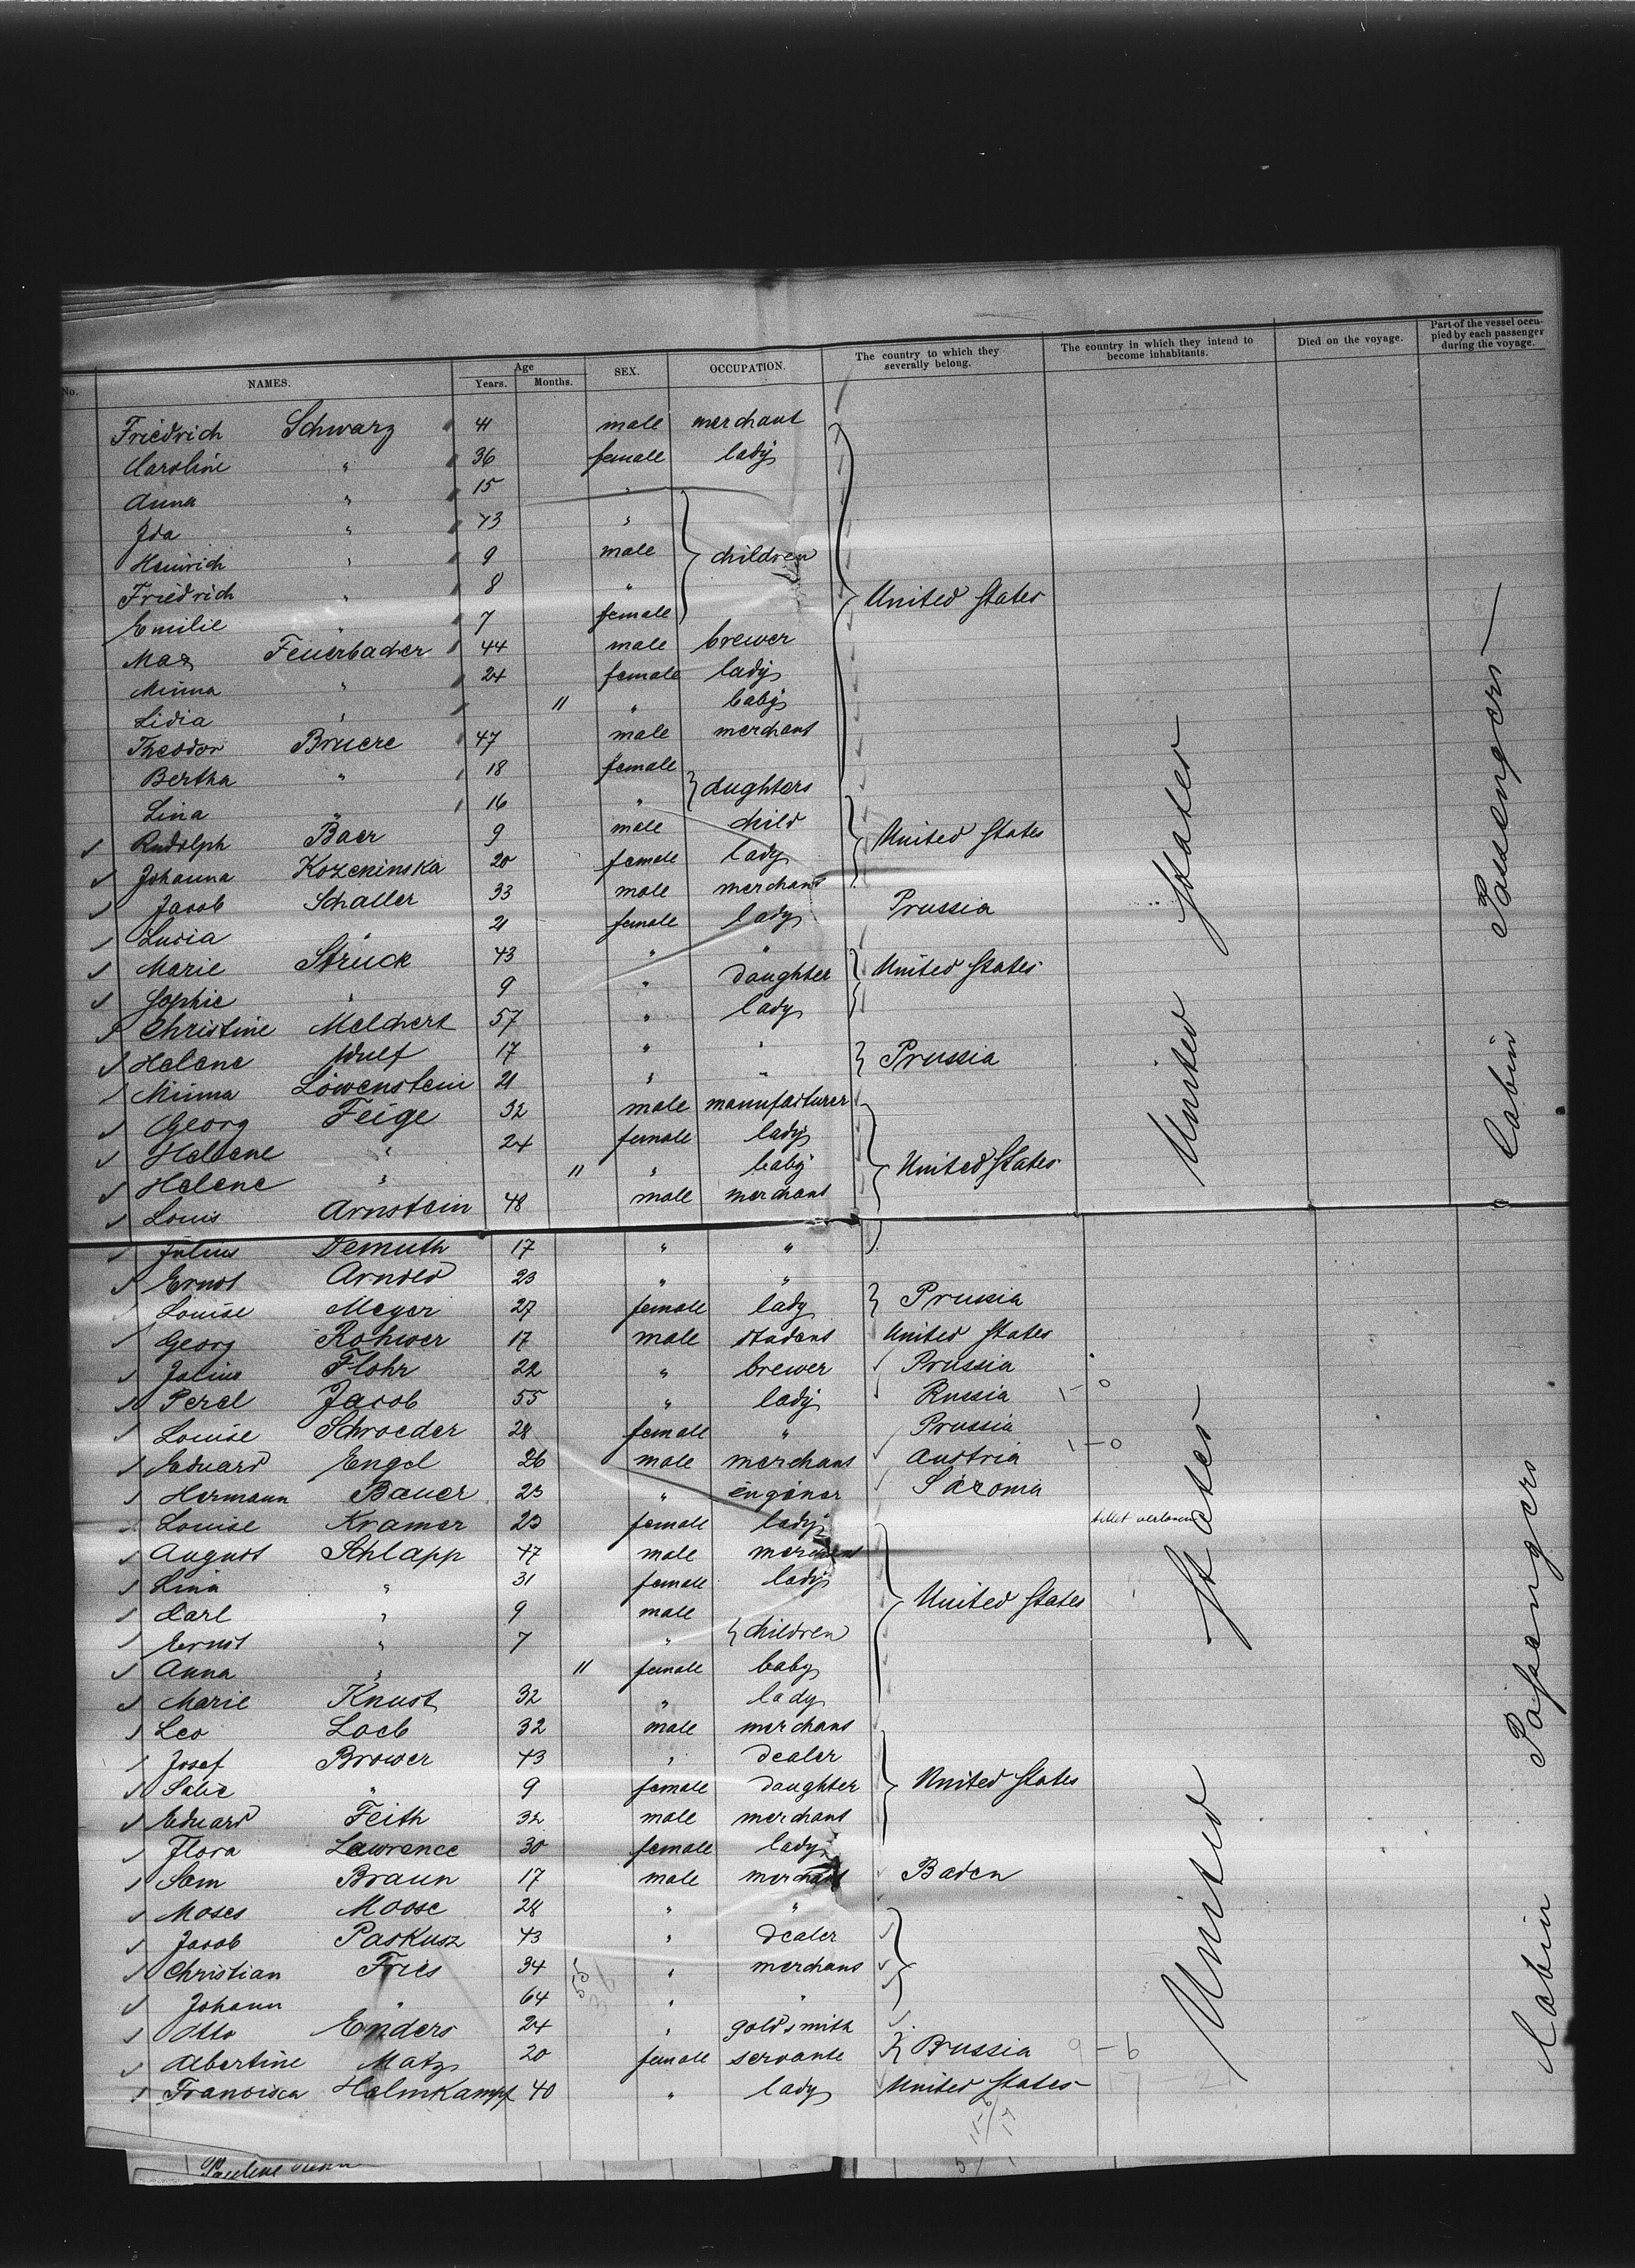 No. NAMES. Age Years. Months. SEX. OCCUPATION. The country to which they severally belong. The country in which they intend to become inhabitants. Died on the voyage. Part of the vessel occupied by each passenger during the voyage.
Friedrich Schwarz 41 male merchant
Caroline " 36 female lady
Anna " 15 "
Ida " 13 "
Heinrich " 9 male children
Friedrich " 8 " United States
Emilie " 7 female
Max Feuerbacher 44 male brewer
Minna " 24 female lady
Lidia " 11 " baby
Theodor Bruere 47 male merchant
Bertha " 18 female
Lina " 16 " dughters
Rudolph Baer 9 male child United States
Johanna Kozeninska 20 female lady
Jacob Schaller 33 male merchant Prussia
Lucia " 21 female lady
Marie Struck 43 " " United States
Sophie " 9 " daughter
Christine Melchert 57 " lady
Helene Wulf 17 " " Prussia
Minna Löwenstein 21 " "
Georg Feige 32 male manufacturer
Helene " 24 female lady
Helene " 11 " baby United States
Louis Arnstein 48 male merchant
United States Cabin Passengers
Julius Demuth 17 " "
Ernst Arnold 23 " "
Louise Meyer 27 female lady Prussia
Georg Rohwer 17 male student United States
Julius Flohr 22 " brewer Prussia
Perel Jacob 55 " lady Russia 1-0
Louise Schroeder 28 female " Prussia
Eduard Engel 26 male merchant Austria 1-0
Hermann Bauer 23 " enginer Saxonia
Louise Kramer 23 female lady billet verloren
August Schlapp 47 male merchant
Lina " 31 female lady
Carl " 9 male United States
Ernst " 7 " children
Anna " 11 female baby
Marie Knust 32 " lady
Leo Loeb 32 male merchant
Josef Brower 43 " dealer
Salie " 9 female daughter United States
Eduard Feith 32 male merchant
Flora Lawrence 30 female lady
Sam Braun 17 male merchant Baden
Moses Moose 28 " "
Jacob Paskusz 43 " dealer
Christian Fries 34 " merchant
Johann " 64 " "
Otto Enders 24 " goldsmith
Albertine Matz 20 female servante Prussia 9-6
Francisca Holmkampf 40 " lady United States
United States Cabin Passengers
Pauline